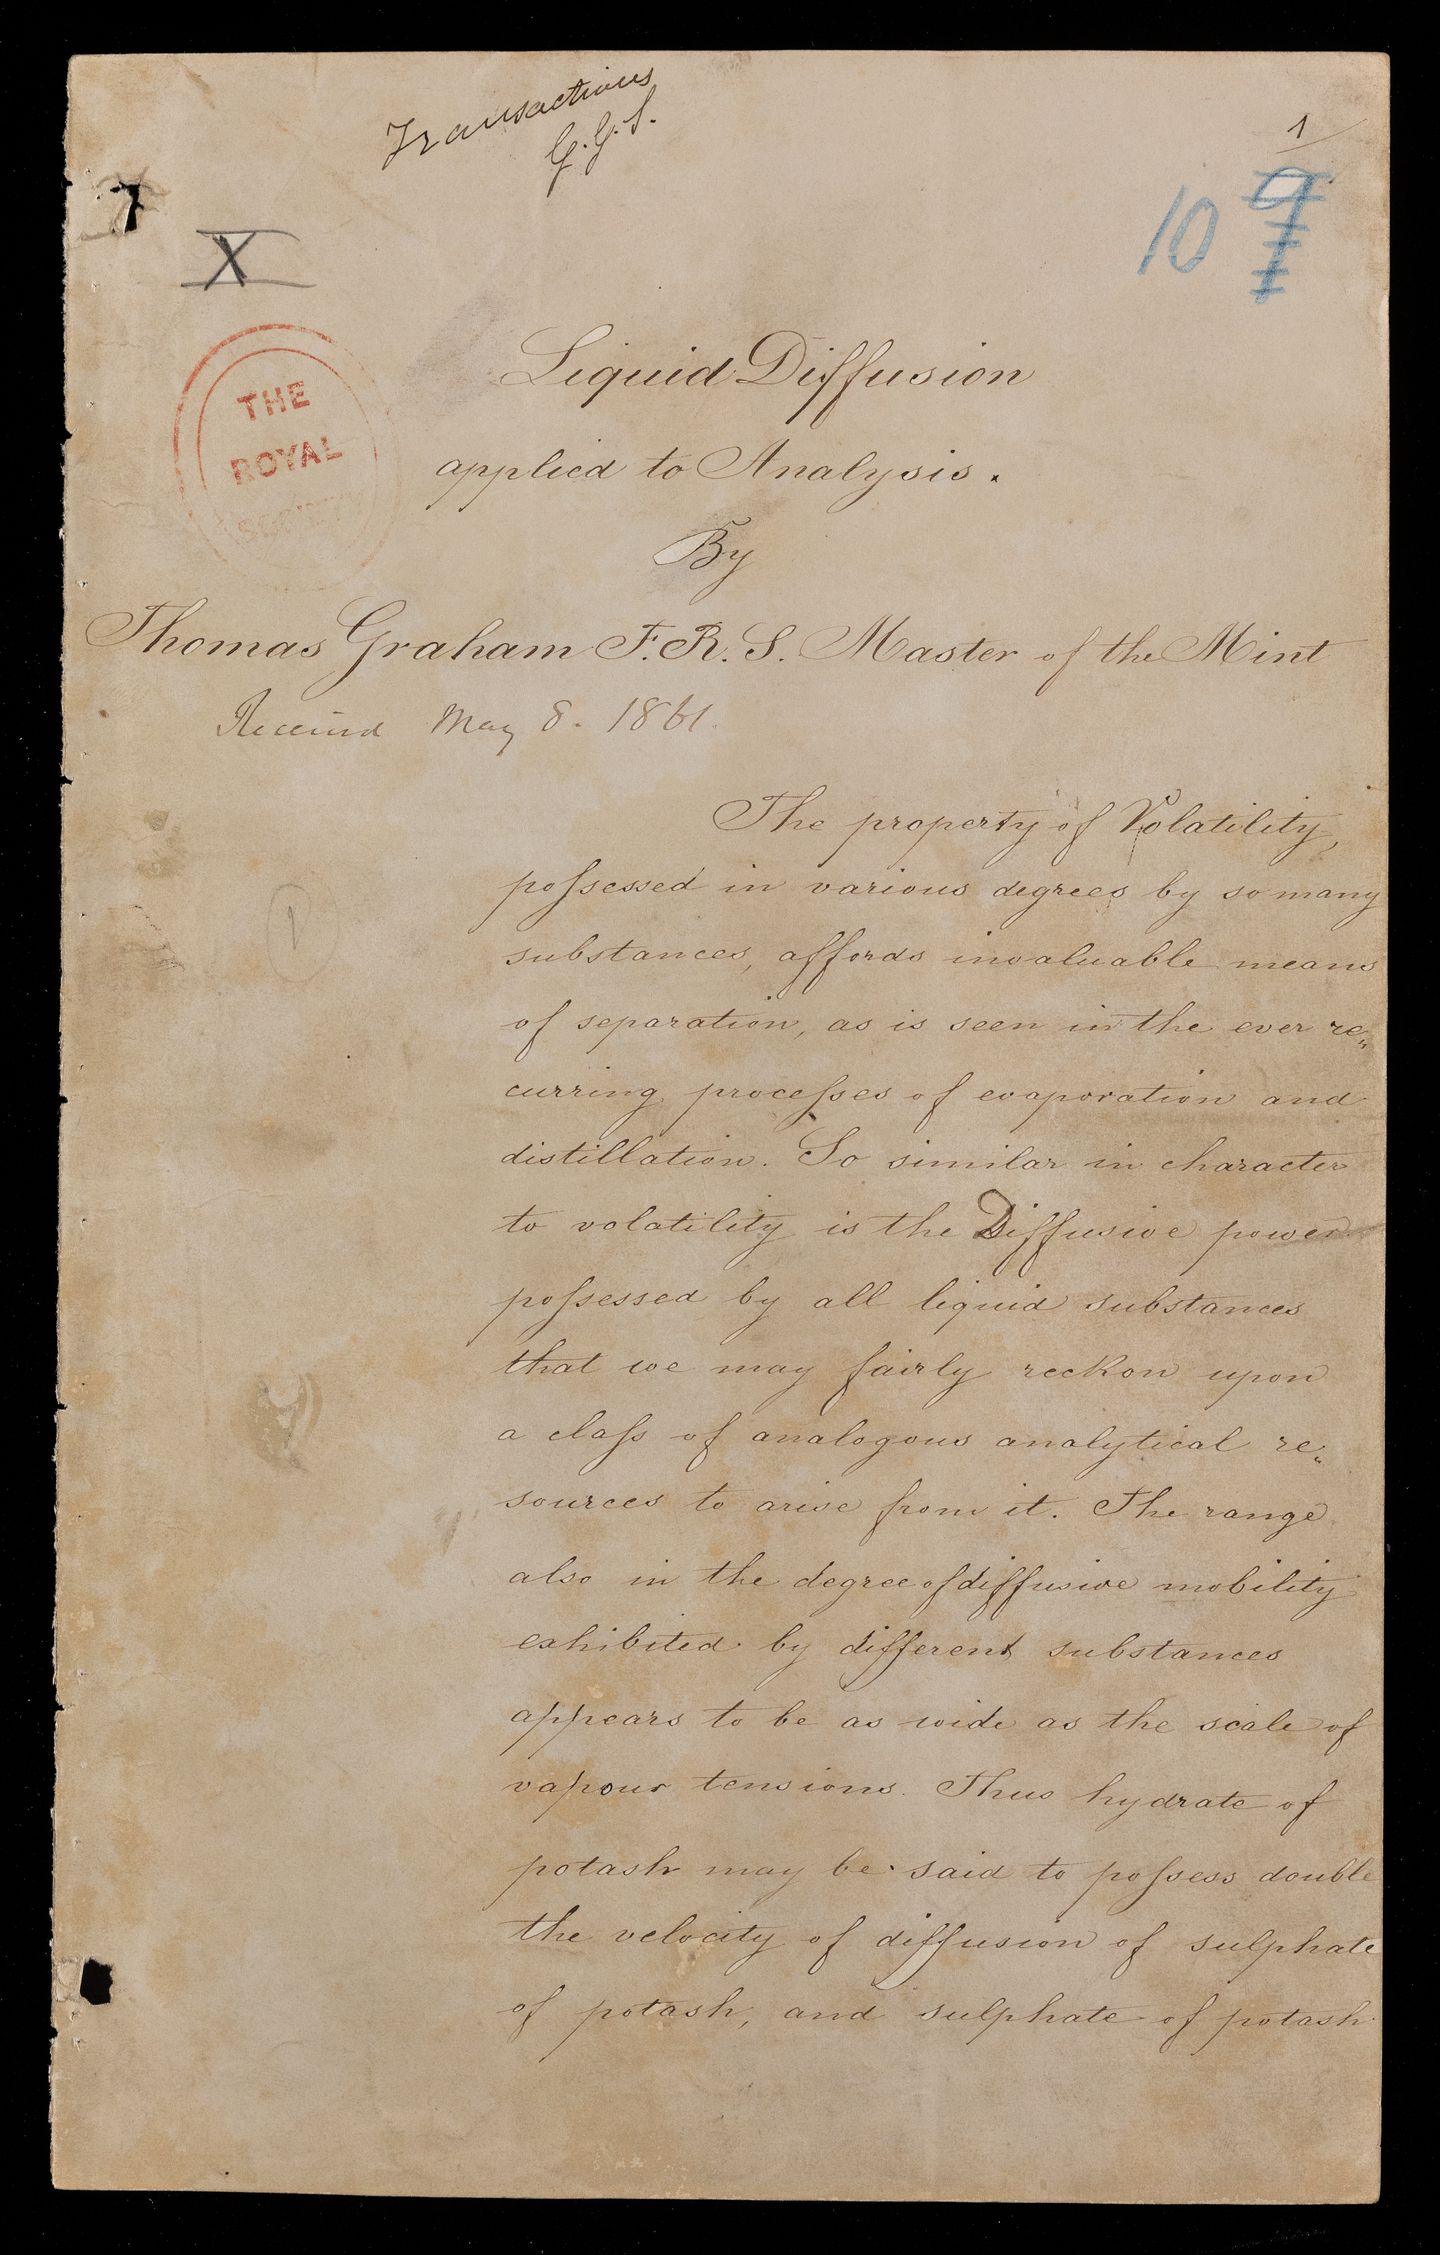 Transactions
G. G. S.
1
10 9
X
THE
ROYAL
SOCIETY
Liquid Diffusion
applied to Analysis.
By
Thomas Graham F.R.S. Master of the Mint
Received May 8. 1861.
The property of Volatility,
possessed in various degrees by so many
1
substances, affords invaluable means
of separation, as is seen in the ever re„
curring processes of evaporation and
distillation. So similar in character
to volatility is the Diffusive power
possessed by all liquid substances
that we may fairly reckon upon
a class of analogous analytical re„
sources to arise from it. The range
also in the degree of diffusive mobility
exhibited by different substances
appears to be as wide as the scale of
vapour tensions. Thus hydrate of
potash may be said to possess double
the velocity of diffusion of sulphate
of potash, and sulphate of potash